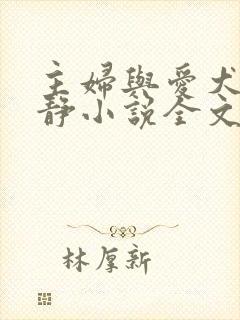 主婦與愛犬
靜小說全文
林厚新